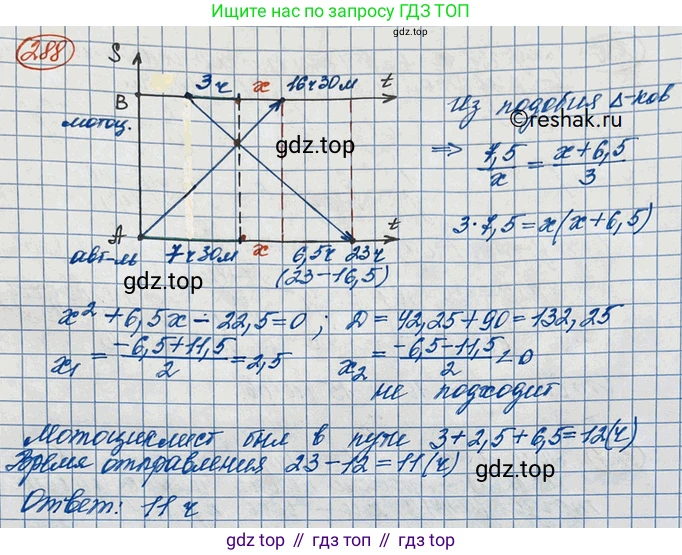 Ищите нас по запросу ГДЗ ТОП
288
S
3ч x 16ч30м t
B
мотоц.
gdz.top
Из подобия Δ-ков
©reshak.ru
⇒ 7,5/x = (x+6,5)/3
3·7,5=x(x+6,5)
A t
авт-ль 7ч30м x 6,5ч 23ч
(23-16,5)
gdz.top
x²+6,5x-22,5=0; D=42,25+90=132,25
x₁ = (-6,5+11,5)/2 = 2,5 x₂ = (-6,5-11,5)/2 <0
не подходит
Мотоциклист был в пути 3+2,5+6,5=12(ч)
Время отправления 23-12=11(ч)
gdz.top
Ответ: 11 ч
gdz.top // гдзтоп // gdz.top // гдзтоп // gdz.top